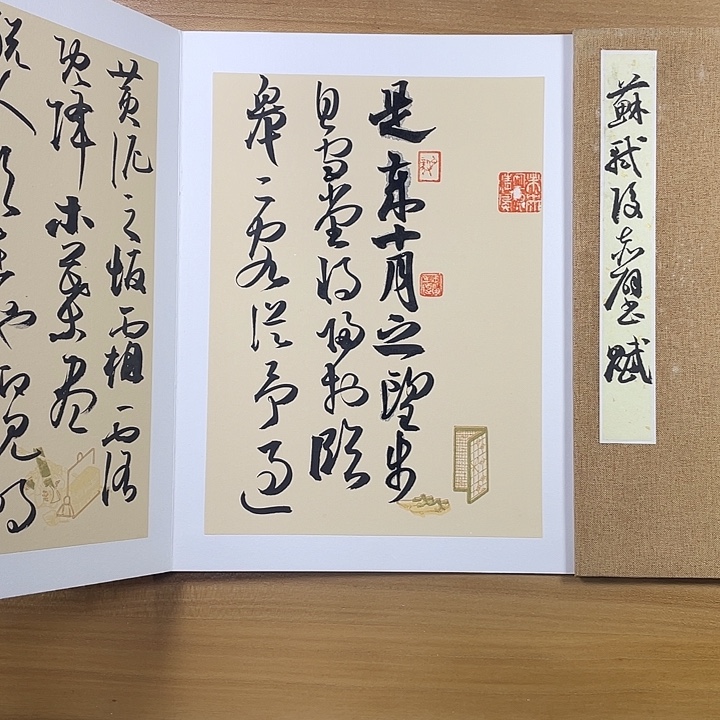 蘇軾後赤壁賦
是歲十月之望步
自雪堂將歸於臨
皋二客從予過
黃泥之坂霜露
既降木葉盡
脫人影在地仰見明